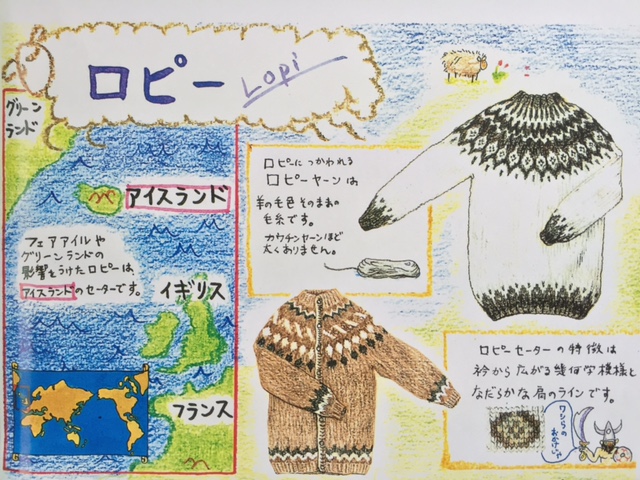 ロピー Lopi
グリーン
ランド
アイスランド
フェアアイルや
グリーンランドの
影響をうけたロピーは、
アイスランドのセーターです。
イギリス
フランス
ロピーにつかわれる
ロピーヤーンは
羊の毛色そのままの
毛糸です。
カウチンヤーンほど
太くありません。
ロピーセーターの特徴は
衿から広がる幾何学模様と
なだらかな肩のラインです。
ワシらの
おかげじゃ